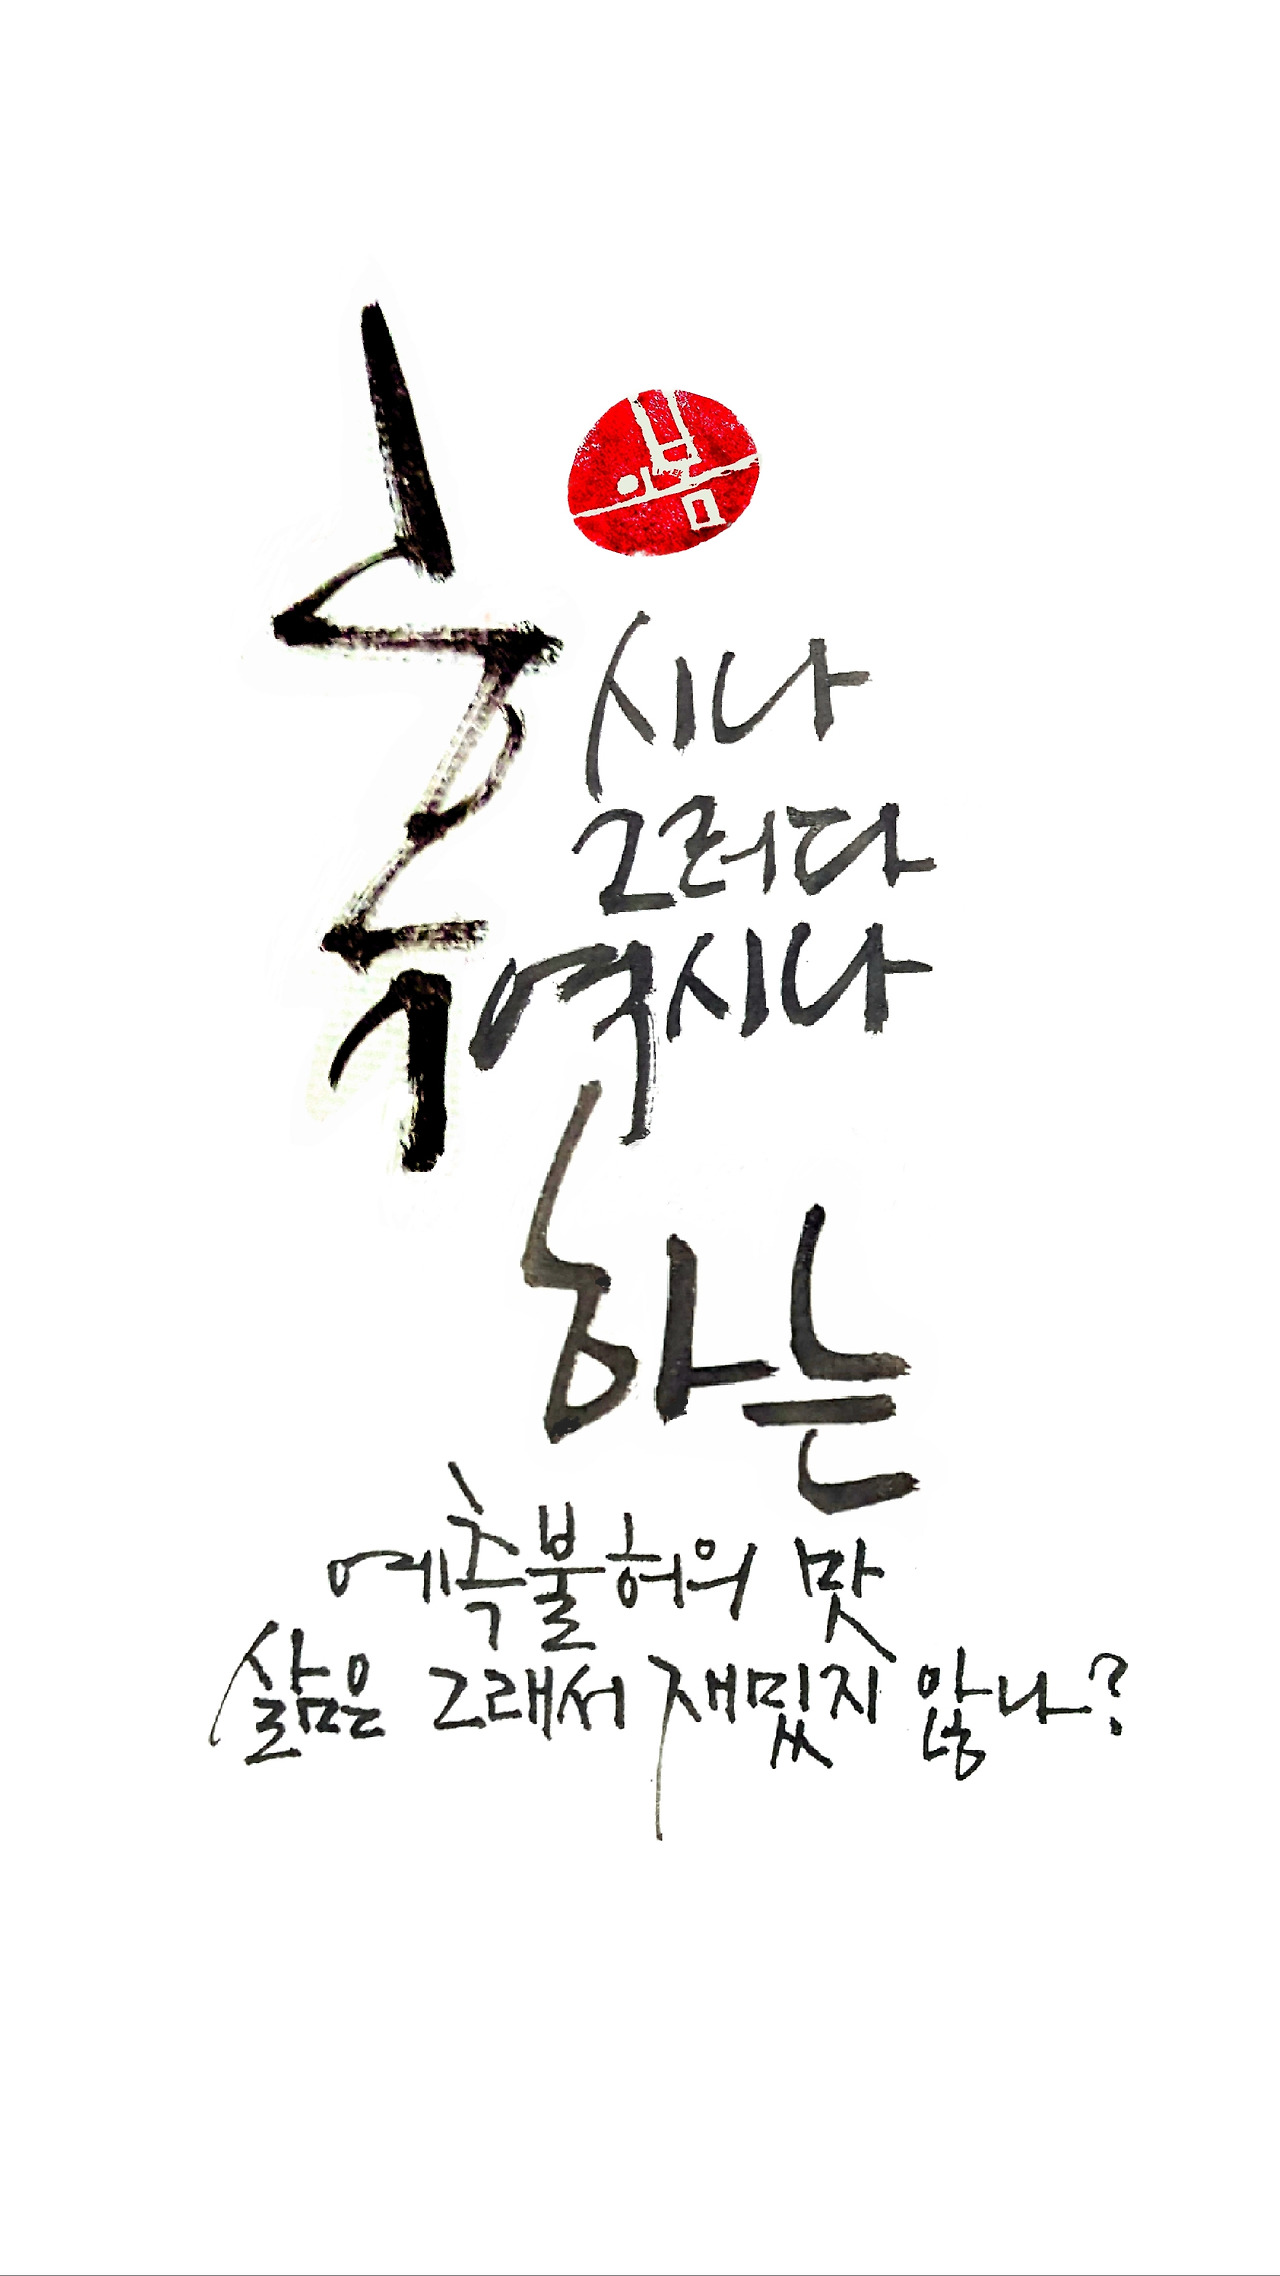 혹시나
그러다
역시나
하는
예측불허의 맛
삶은 그래서 재밌지 않나?